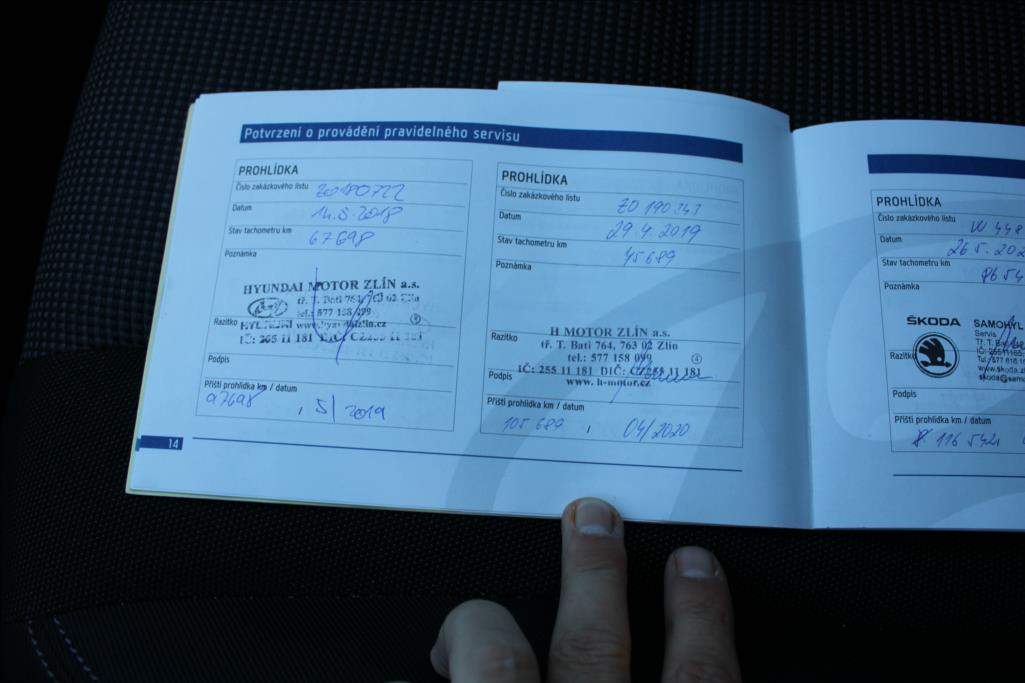 Potvrzení o provádění pravidelného servisu
PROHLÍDKA
Číslo zakázkového listu
Datum 14.5.2018
Stav tachometru km 67698
Poznámka
HYUNDAI MOTOR ZLÍN a.s.
tř. T. Bati 764, 763 02 Zlín
tel.: 577 158 099
Razítko HYUNDAI
IČ: 255 11 181 DIČ: CZ255 11 181
Podpis
Příští prohlídka km / datum
97698, 5/2019
14
PROHLÍDKA
Číslo zakázkového listu ZO 190 341
Datum 29.4.2019
Stav tachometru km 45689
Poznámka
H MOTOR ZLÍN a.s.
Razítko tř. T. Bati 764, 763 02 Zlín
tel.: 577 158 099 4
Podpis IČ: 255 11 181 DIČ: CZ255 11 181
www.h-motor.cz
Příští prohlídka km / datum
105 689, 04/2020
PROHLÍDKA
Číslo zakázkového listu W 448
Datum 26.5.202
Stav tachometru km 8654
Poznámka
ŠKODA SAMOHÝL
Servis
Razítko
Podpis
Příští prohlídka km / datum
116 542